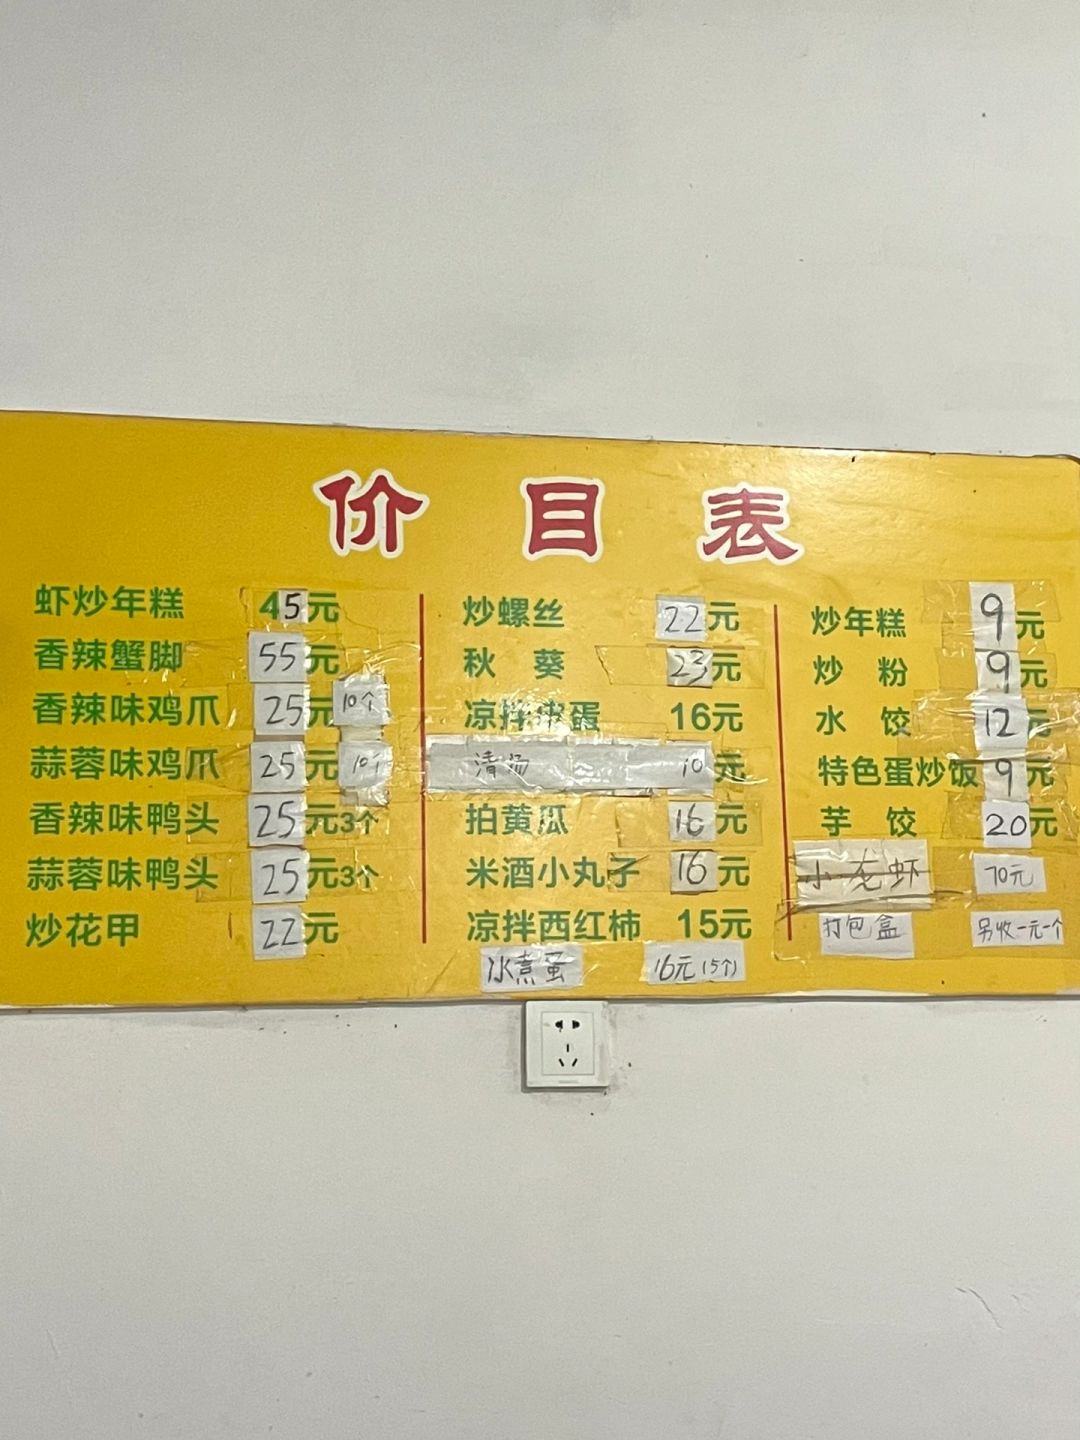 价目表
虾炒年糕 45元
香辣蟹脚 55元
香辣味鸡爪 25元 10个
蒜蓉味鸡爪 25元 10个
香辣味鸭头 25元3个
蒜蓉味鸭头 25元3个
炒花甲 22元
炒螺丝 22元
秋葵 23元
凉拌皮蛋 16元
清汤 10元
拍黄瓜 16元
米酒小丸子 16元
凉拌西红柿 15元
水煮蛋 16元(5个)
炒年糕 9元
炒粉 9元
水饺 12元
特色蛋炒饭 9元
芋饺 20元
小龙虾 70元
打包盒 另收一元一个